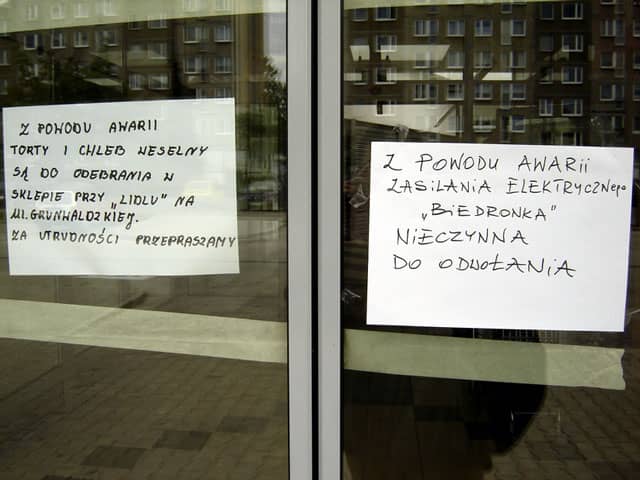 Z POWODU AWARII
TORTY I CHLEB WESELNY
SĄ DO ODEBRANIA W
SKLEPIE PRZY „LIDLU" NA
UL. GRUNWALDZKIEJ.
ZA UTRUDNOŚCI PRZEPRASZAMY
Z POWODU AWARII
ZASILANIA ELEKTRYCZNEgo
„BIEDRONKA"
NIECZYNNA
DO ODWOŁANIA